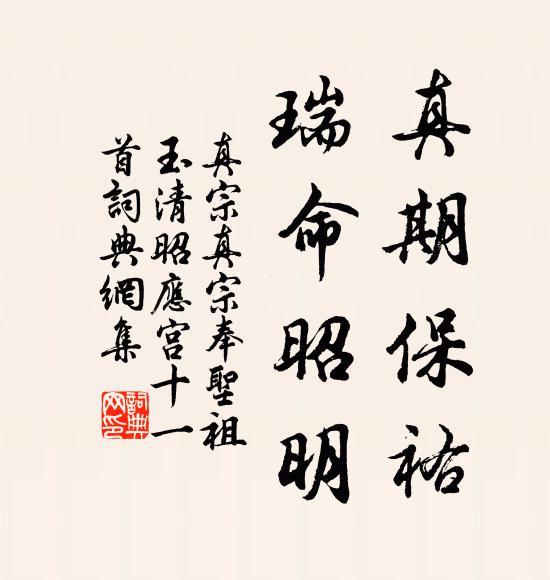 真期保祐
瑞命昭明
真宗真宗奉聖祖
玉清昭應宮十一
首詞典網集
詞典
网印